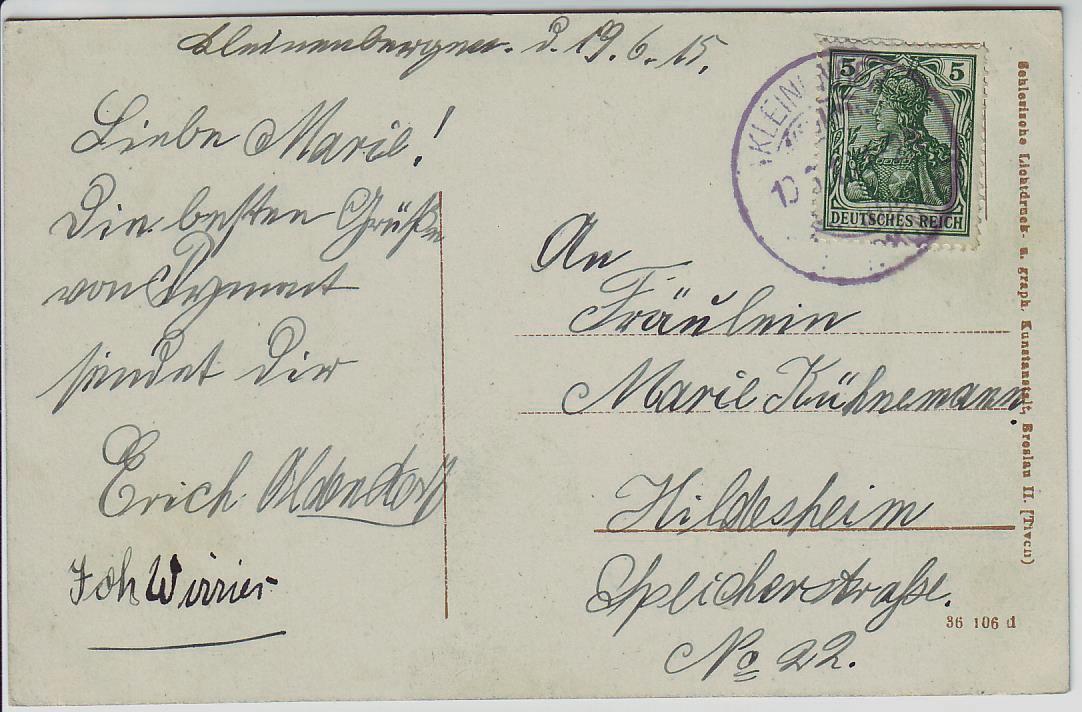 Kleinenbergen. d. 19.6.15.
Liebe Marie!
Die besten Grüße
von Pyrmont
sendet Dir
Erich Oldendorf
Joh Wirries
KLEIN
5 5
DEUTSCHES REICH
An
Fräulein
Marie Kühnemann.
Hildesheim
Speicherstraße.
No 22.
Schlesische Lichtdruck- u. graph. Kunstanstalt, Breslau II. (Tivoli)
36 106 d